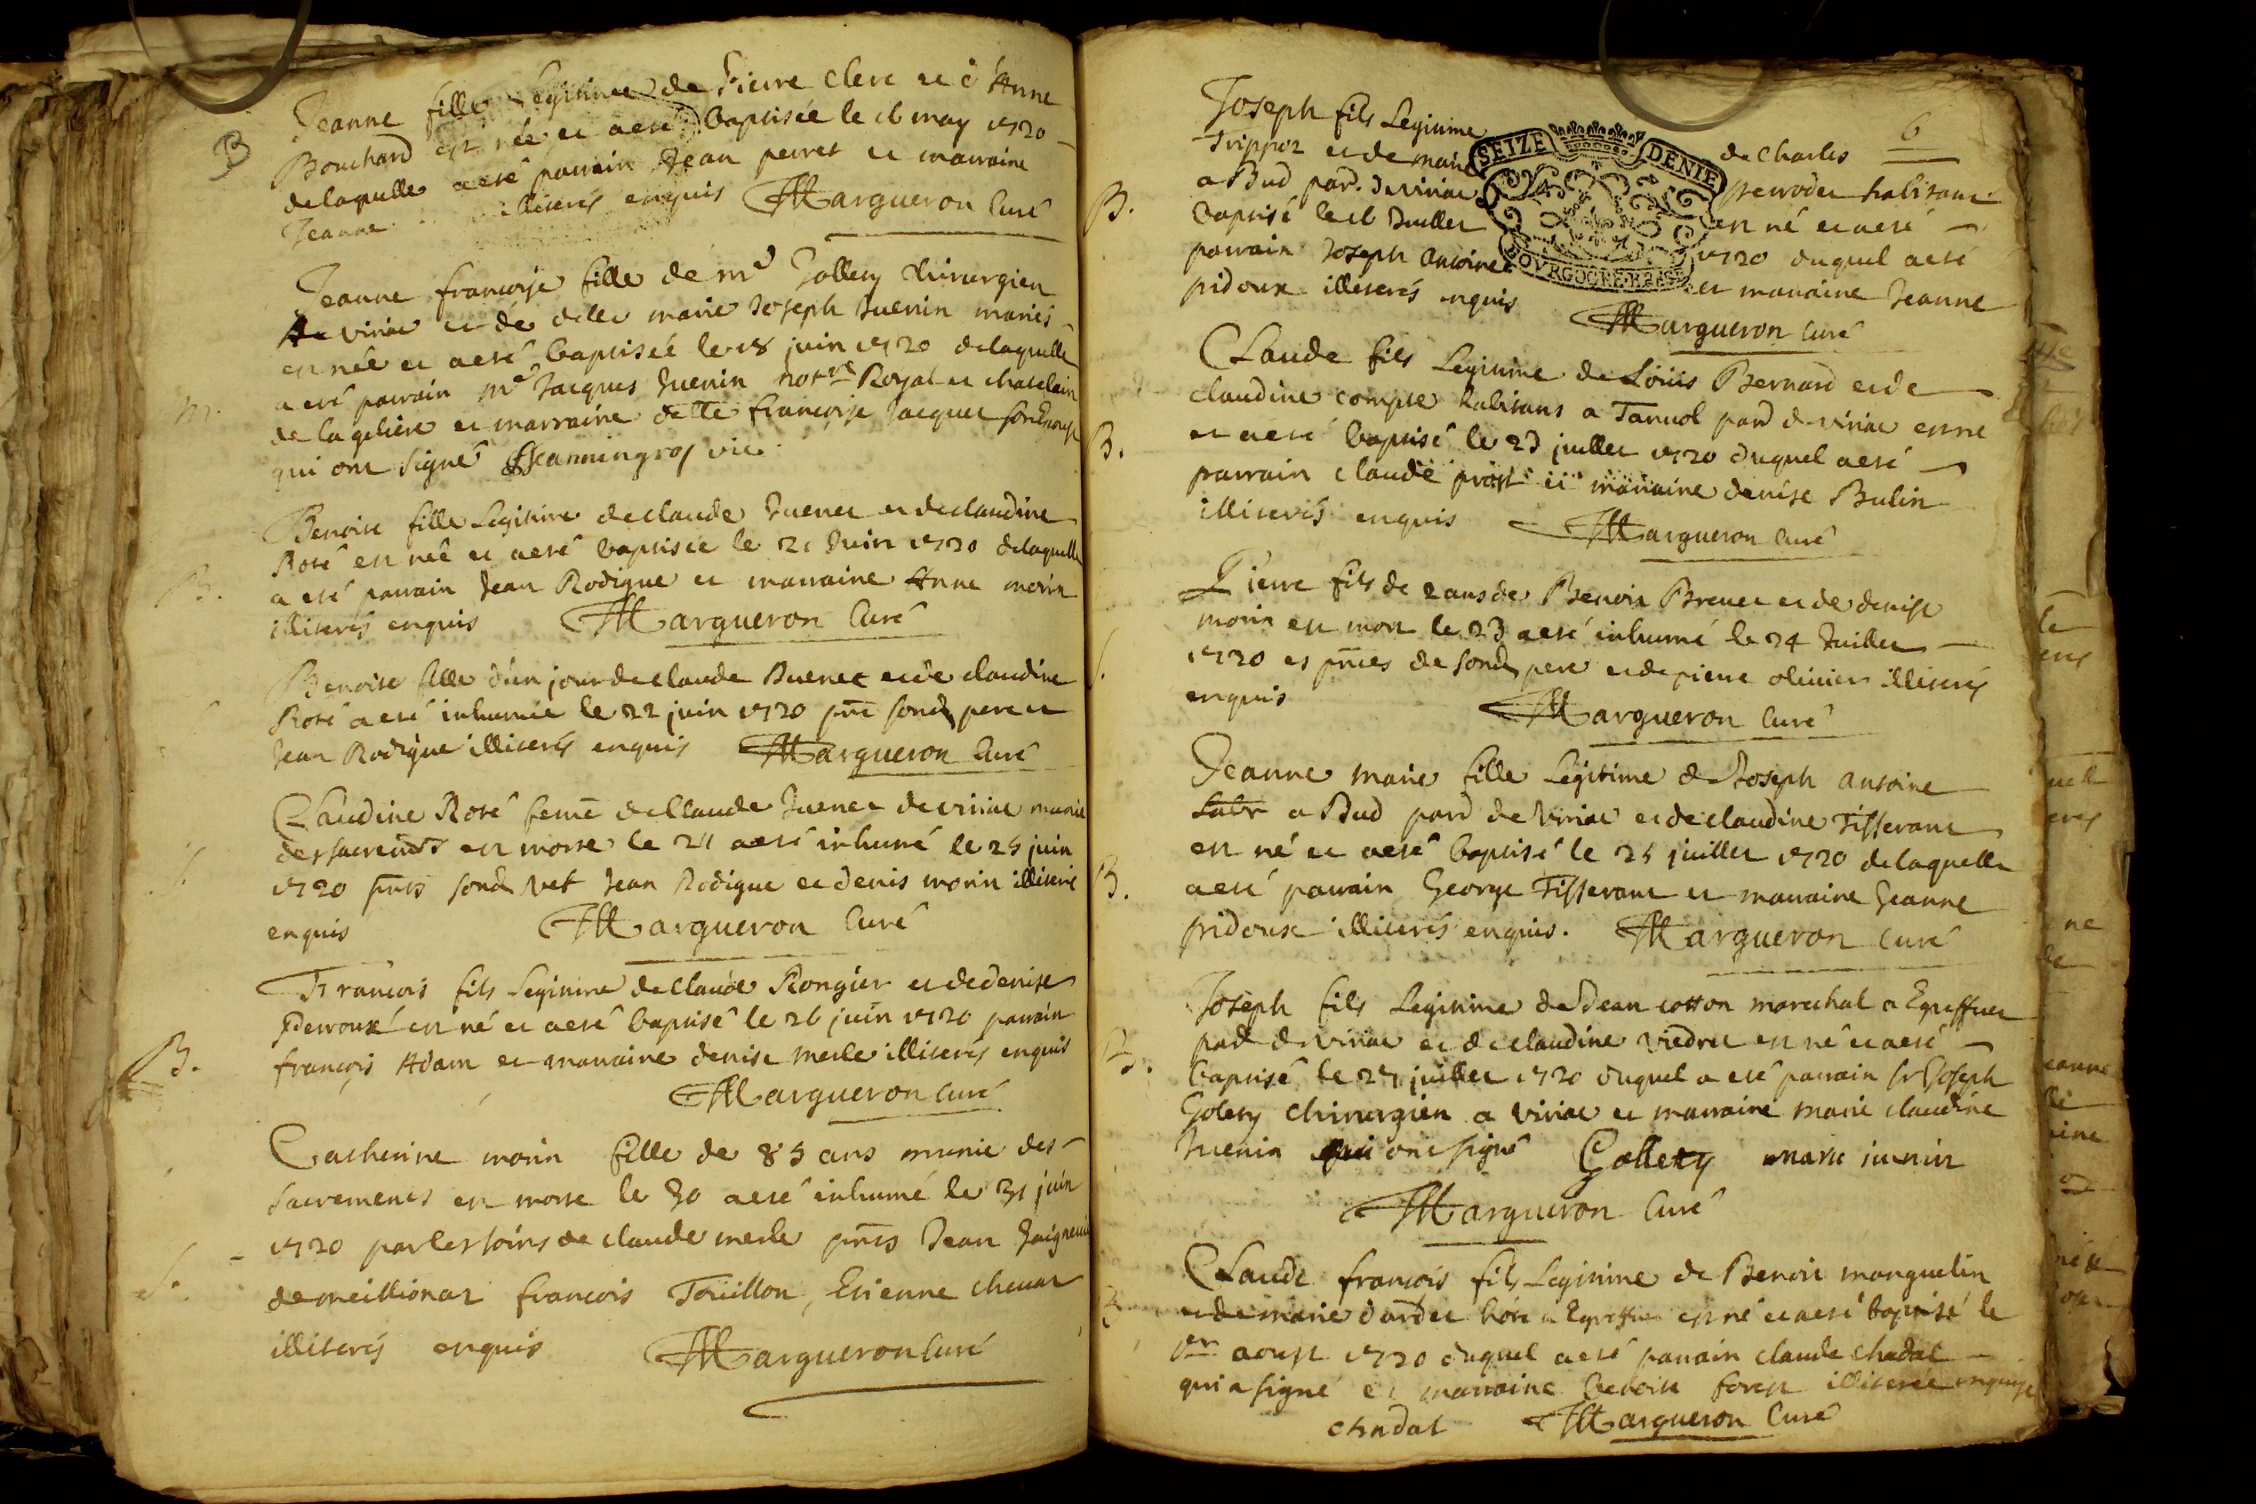 B
Jeanne fille Legitime de Pierre Clerc et d'Anne
Bouchard est née et a eté baptisée le 16 may 1720
de laquelle a eté parrain Jean perret et marraine
Jeanne illiterés enquis Margueron Curé
Jeanne françoise fille de mr Gollety chirurgien
a viriac et de delle marie Joseph Juenin mariés
est née et a eté baptisée le 18 juin 1720 delaquelle
a eté parrain me Jacques Juenin notre Royal et chatelain
de la et marraine delle françoise Jacquet son Epouse
qui ont signé Jeanningros vic.
m.
Benoite fille Legitime de claude Juenet et de claudine
Roté est née et a eté baptisée le 21 Juin 1720 delaquelle
a eté parrain Jean Rodigue et marraine Anne morin
illiterés enquis Margueron Curé
B.
Benoite fille d'un jour de claude Juenet et de claudine
Roté a eté inhumée le 22 juin 1720 pnt sond pere et
Jean Rodigue illiterés enquis Margueron Curé
Claudine Roté feme de Claude Juenet de viriac munie
des sacremts est morte le 24 a eté inhumé le 25 juin
1720 pnts sond vef Jean Rodigue et denis morin illiteré
enquis Margueron Curé
S.
François fils Legitime de Claude Rongier et de denise
perroux est né et a eté baptisé le 26 juin 1720 parrain
françois Adam et marraine denise merle illiterés enquis
Margueron Curé
B.
Catherine morin fille de 85 ans munie des
sacrements est morte le 30 a eté inhumé le 31 juin
1720 par les soins de claude merle pnts Jean
de meillionat françois Touillon, Etienne chevat
illiterés enquis Margueron Curé
S.
6
Joseph fils Legitime de Charles
Trippoz et de marie perrodet habitant
a Bud par. de viriac est né et a eté
baptisé le 16 Juillet 1720 duquel a eté
parrain Joseph Antoine et marraine Jeanne
pidoux illiterés enquis Margueron Curé
B.
SEIZE DENIE
BOVRGOGNE BRESSE
Claude fils Legitime de Loüis Bernard et de
claudine compte habitans a Tanvol pard de viriac est né
et a eté baptisé le 23 juillet 1720 duquel a eté
parrain claude prost et marraine denise Bulin
illiterés enquis Margueron Curé
B.
Pierre fils de 2 ans de Benoit Brevet et de denise
morin est mort le 23 a eté inhumé le 24 Juillet
1720 es pntes de sond pere et de pierre olivier illiterés
enquis Margueron Curé
S.
Jeanne marie fille Legitime de Joseph Antoine
a Bud pard de viriac et de claudine Tisserant
est né et a eté baptisé le 25 juillet 1720 delaquelle
a eté parrain George Tisserant et marraine Jeanne
pidoux illiterés enquis. Margueron Curé
B.
Joseph fils Legitime de Jean cotton marechal a Egreffuet
pard de viriac et de claudine viedret est né et a eté
baptisé le 27 juillet 1720 duquel a eté parrain sr Joseph
Golety chirurgien a viriac et marraine marie claudine
Juenin qui ont signé Gollety marie iuenin
Margueron Curé
B.
Claude françois fils Legitime de Benoit manguelin
et de marie dardet hôte a Egreffuet est né et a eté baptisé le
1er aoust 1720 duquel a eté parrain claude Chadal
qui a signé et marraine Benoite forest illiterée enquise
chadal Margueron Curé
B